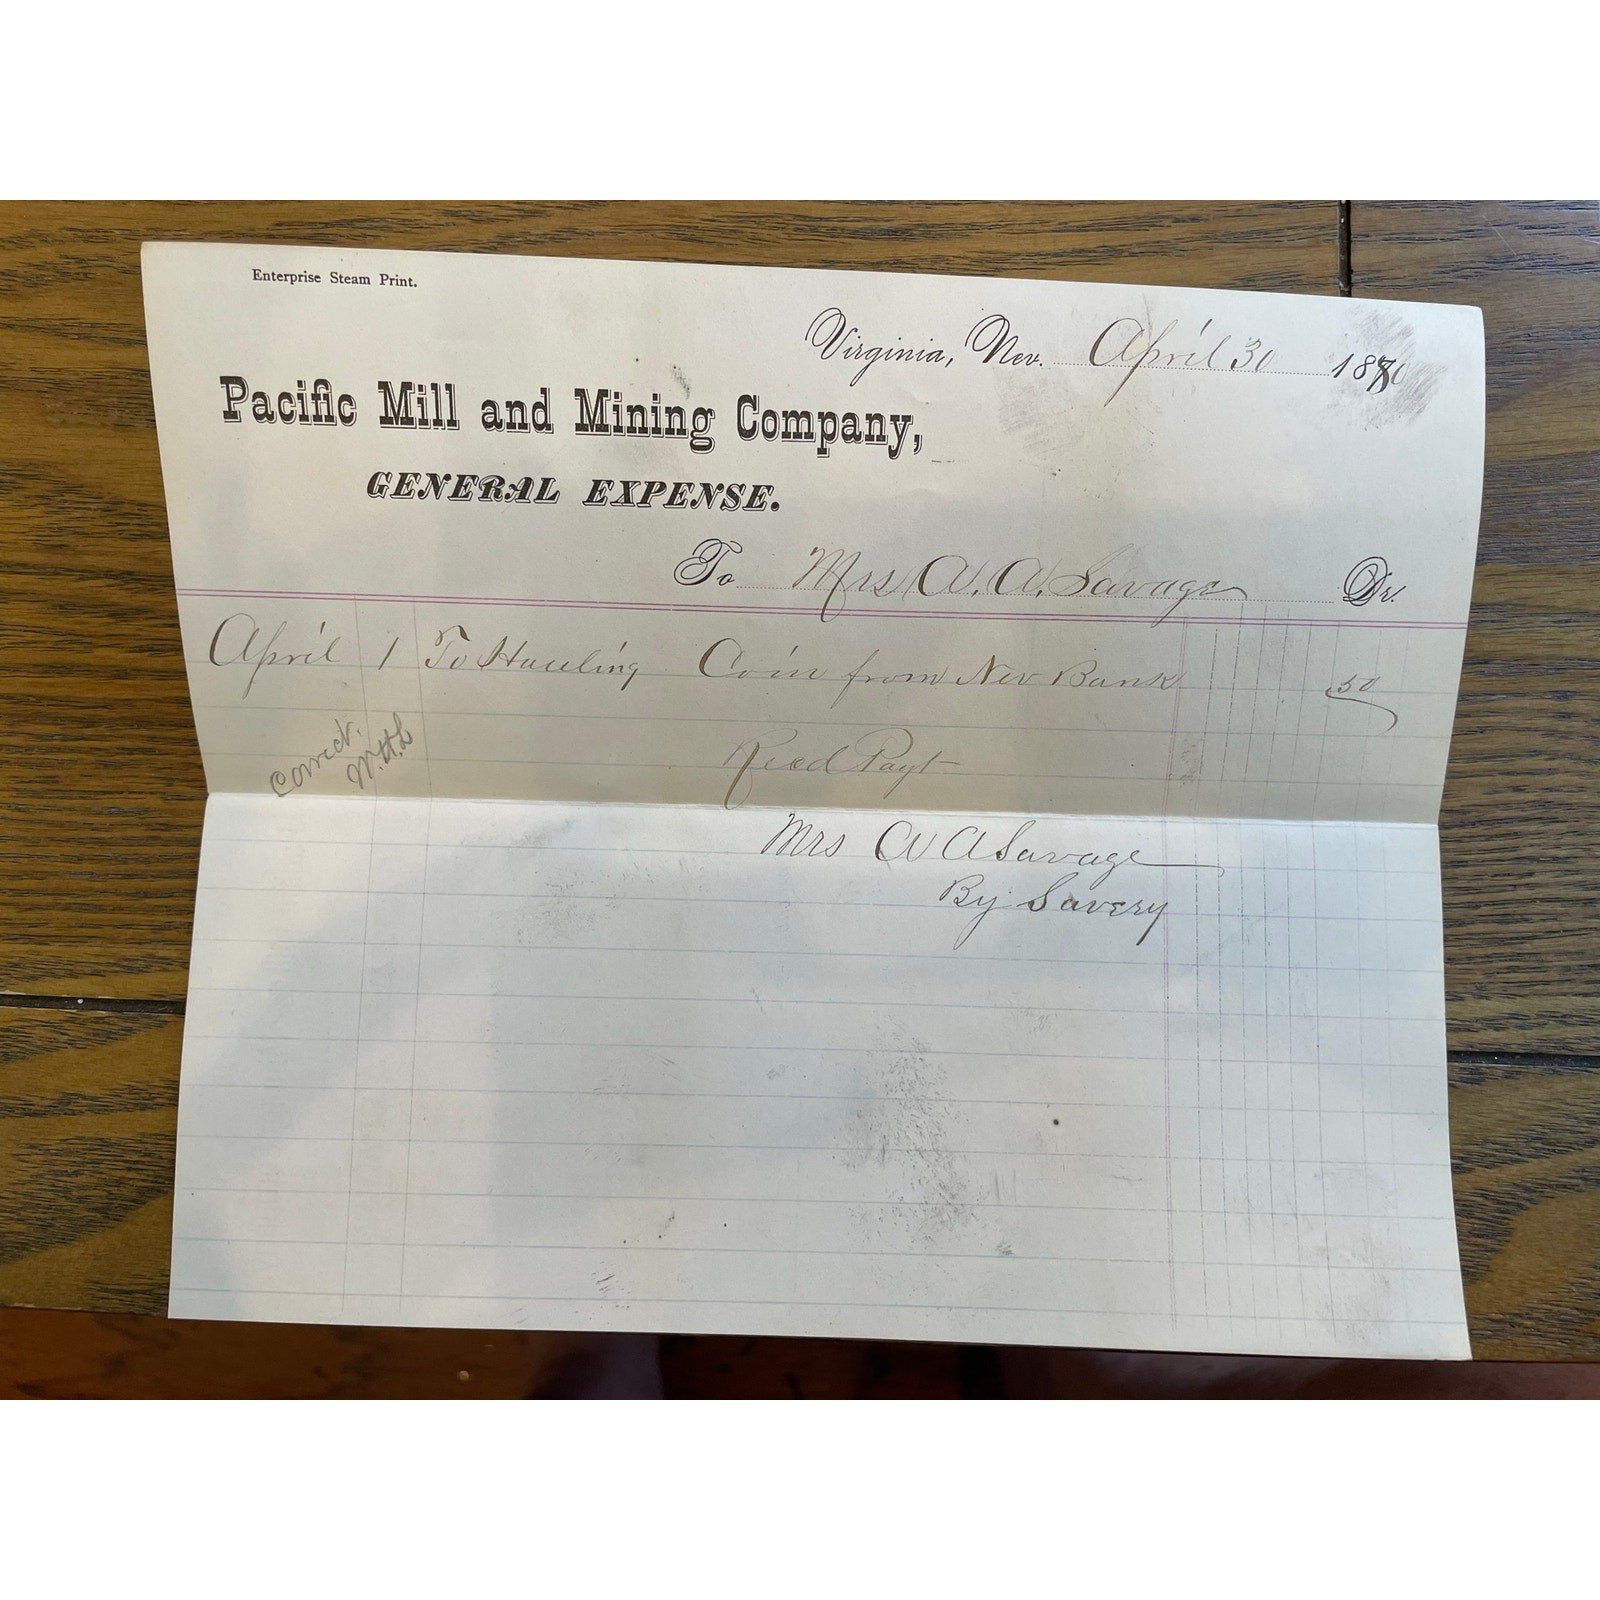 Enterprise Steam Print.
Virginia, Nev. April 30 1880
Pacific Mill and Mining Company,
GENERAL EXPENSE.
To Mrs A. A. Savage Dr.
April 1 To Hauling Coin from Nev Bank 50
Correct.
W.H.L
Recd Payt
Mrs A A Savage
By Savery